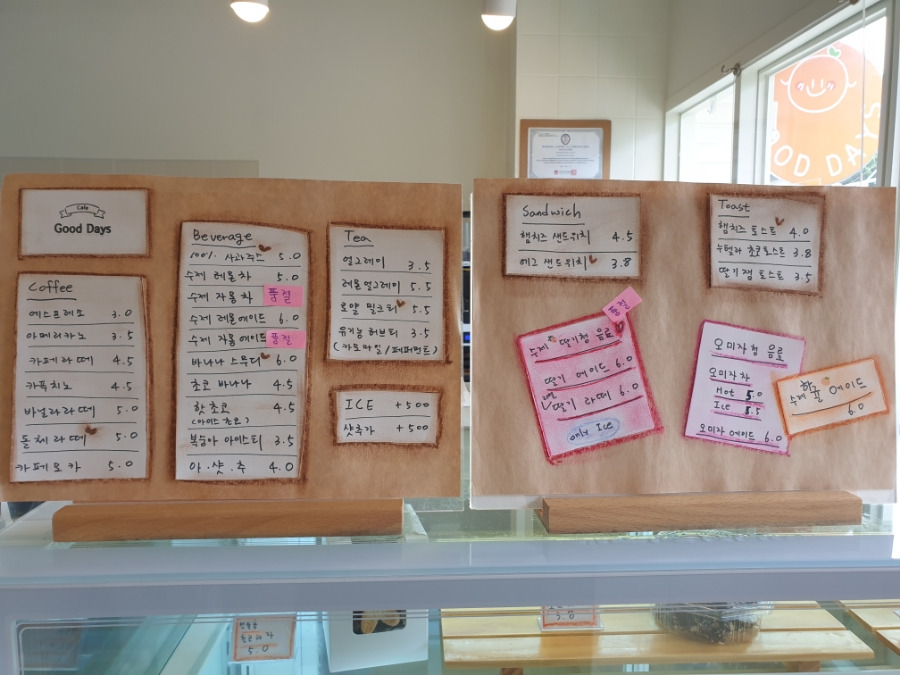 Cafe
Good Days
Coffee
에스프레소 3.0
아메리카노 3.5
카페라떼 4.5
카푸치노 4.5
바닐라라떼 5.0
돌체라떼 5.0
카페모카 5.0
Beverage
100% 사과주스 5.0
수제 레몬차 5.0
수제 자몽차 품절
수제 레몬에이드 6.0
수제 자몽에이드 품절
바나나 스무디 6.0
초코 바나나 4.5
핫초코 4.5
복숭아 아이스티 3.5
아.샷.추 4.0
Tea
얼그레이 3.5
레몬얼그레이 5.5
로얄 밀크티 5.5
유기농 허브티 3.5
(카모마일/페퍼민트)
ICE +500
샷추가 +500
Sandwich
햄치즈 샌드위치 4.5
에그 샌드위치 3.8
Toast
햄치즈 토스트 4.0
누텔라 초코토스트 3.8
딸기잼 토스트 3.5
수제 딸기청 음료
딸기 에이드 6.0
딸기 라떼 6.0
only Ice
오미자청 음료
오미자차
Hot 5.0
Ice 5.5
오미자 에이드 6.0
수제 한라봉 에이드
6.0
GOOD DAYS
5.0
3.8